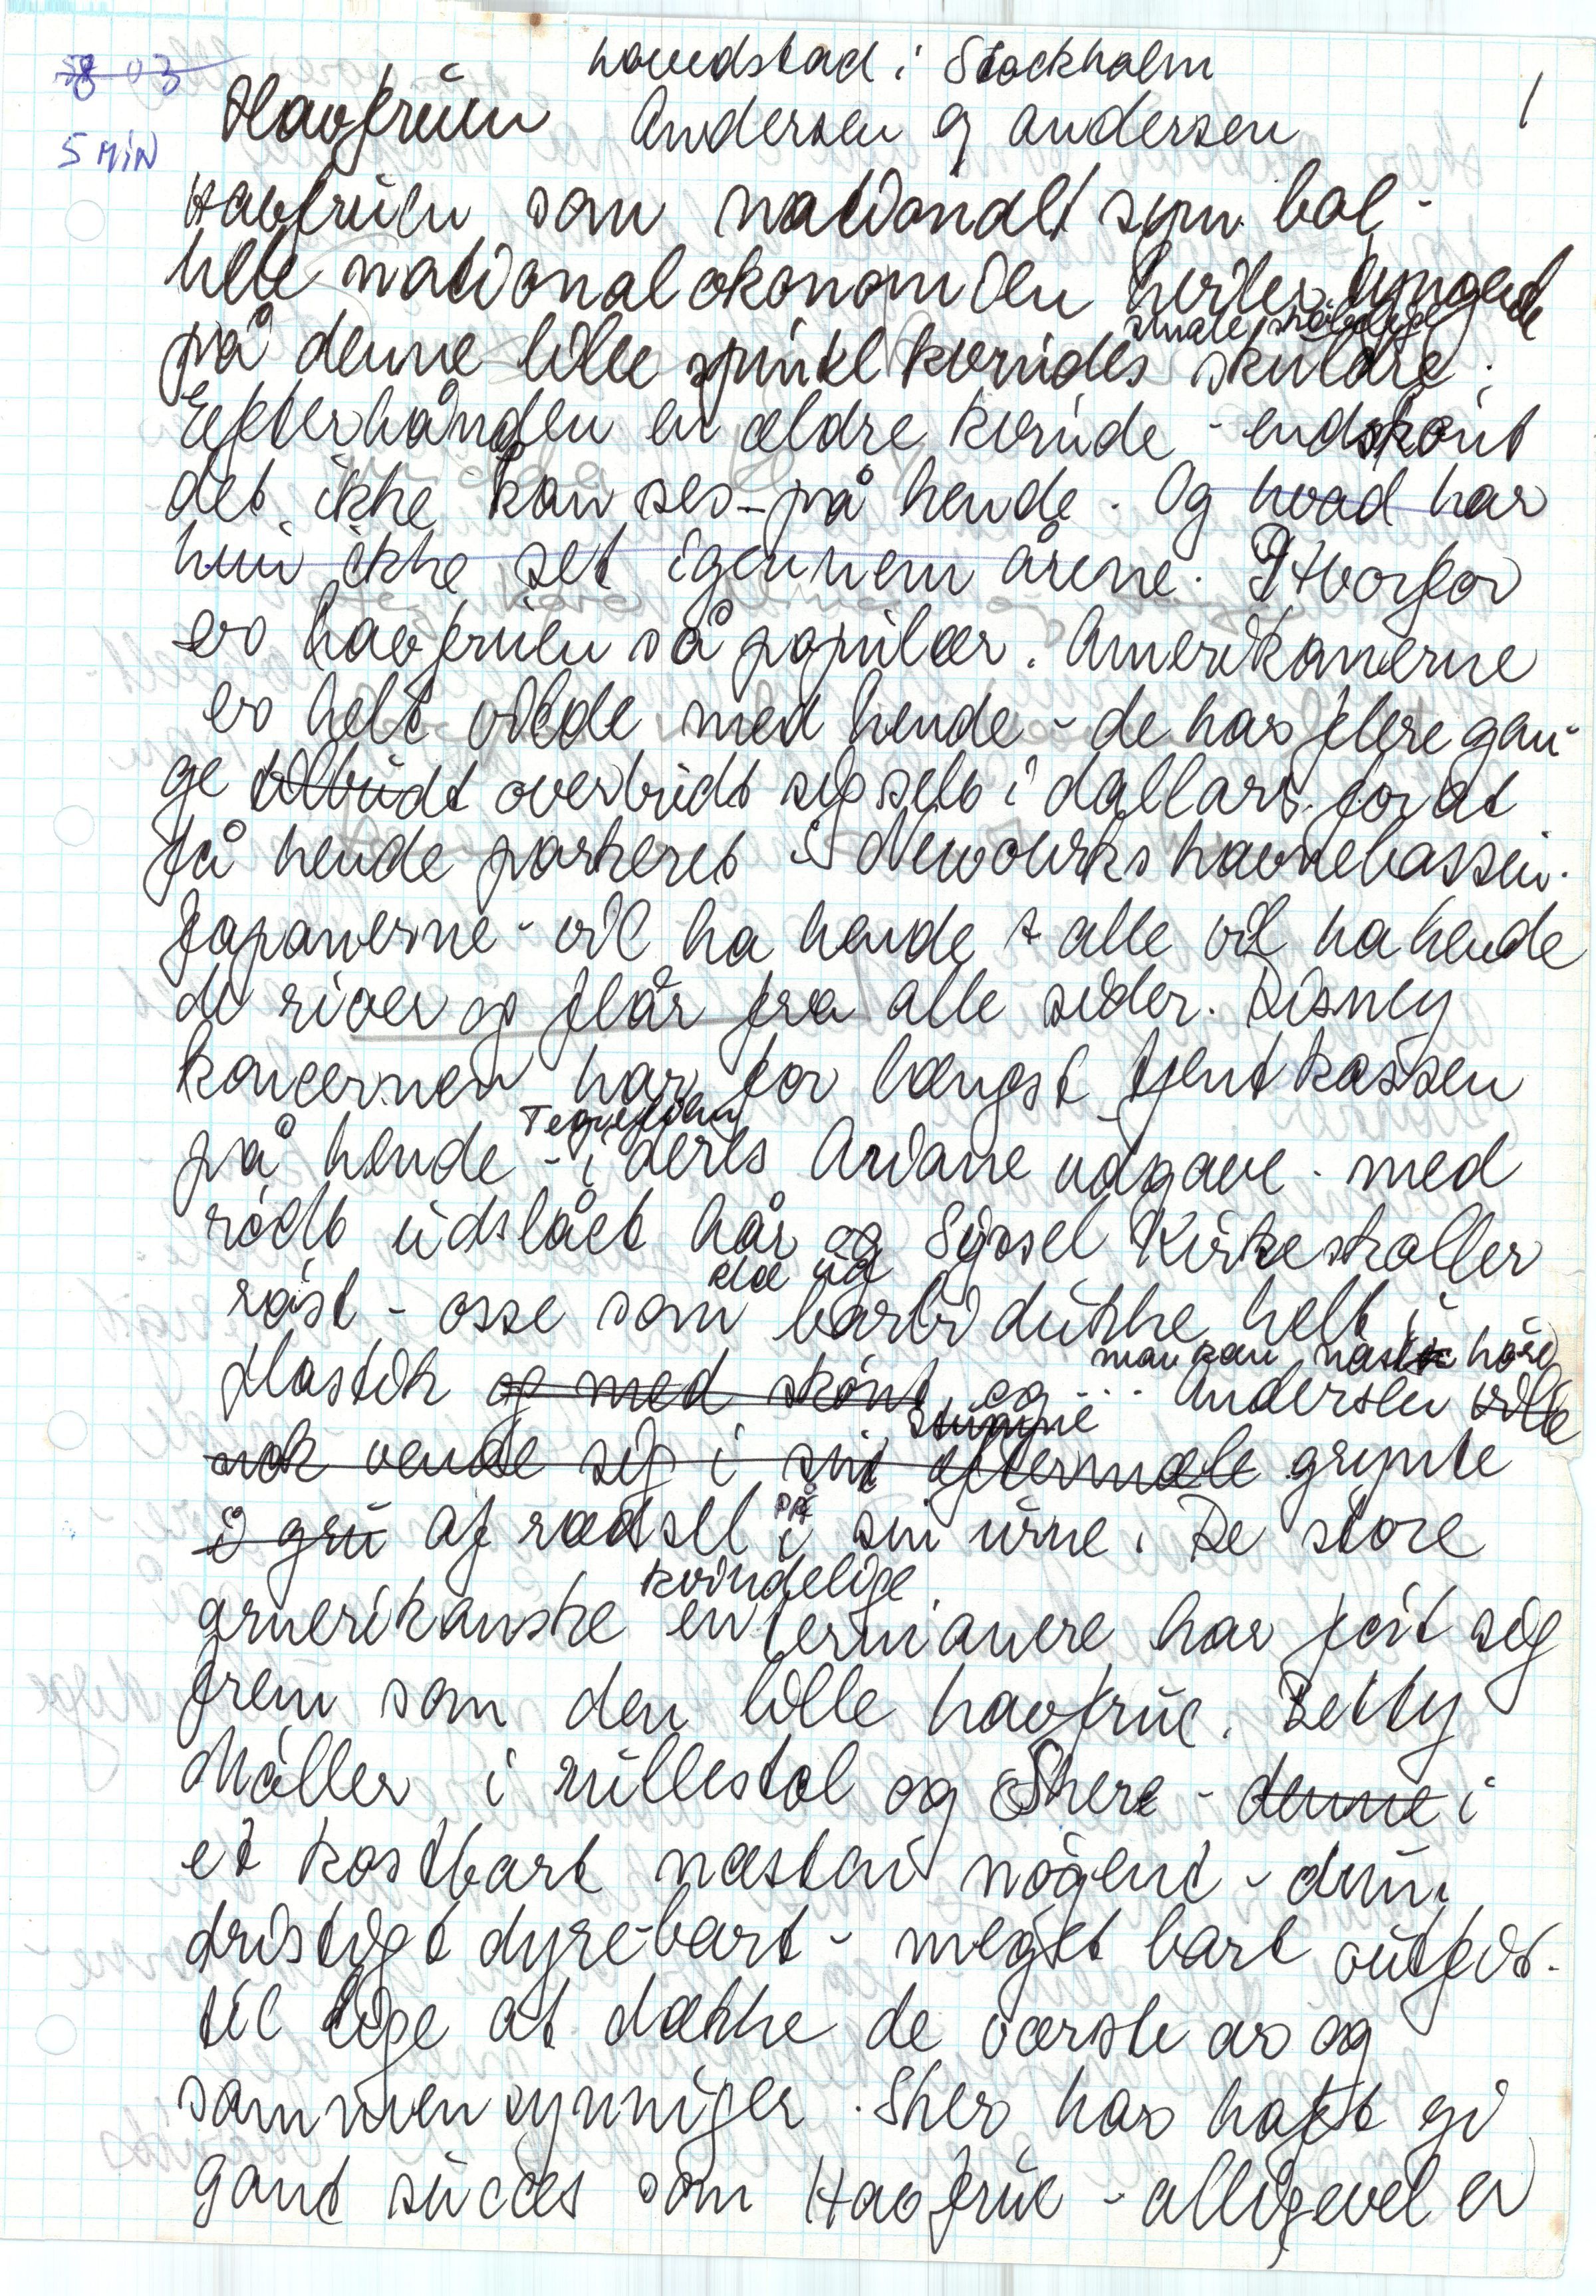 hovedstad i Stockholm
8 03
1
Havfruen Andersen og Andersen
5 MIN
Havfruen som nationalt symbol -
hele nationaløkonomien hviler tyngende
smale skrøbelige
på denne lille spinkl kvindes skuldre.
Efterhånden en ældre kvinde - endskønt
det ikke kan ses - på hende. Og hvad har
hun ikke set igennem årene. Hvorfor
er havfruen så populær. Amerikanerne
er helt vilde med hende - de har flere gan-
ge tilbudt overbudt sig selv i dollars for at
få hende parkeret i Newourks havnebassin.
Japanerne - vil ha hende + alle vil ha hende
de river og flår fra alle sider. Disney
koncernen har for længst tjent kassen
Tegnefilm
på hende - i deres Ariane udgave - med
rødt udslået hår og Syssel Kirkeskaller
røst - osse som barbi dukke helt i
man kan næste høre
plastik og med skønt og ... Andersen ville
stumpne
nok vende sig i sit eftermæle grynte
i gru af rædsel i på sin urne. De store
kvindelige
amerikanske enterniauere har føit sig
frem som den lille havfrue. Betty
Møller i rullestol og Shere - denne i
et kostbart næsten nøgent - dum
dristigt dyre-bart - meget bart outfit.
til lige at dække de værste ar og
sammensynniger. Sher har haft gi
gant succes som Havfrue - alligevel er